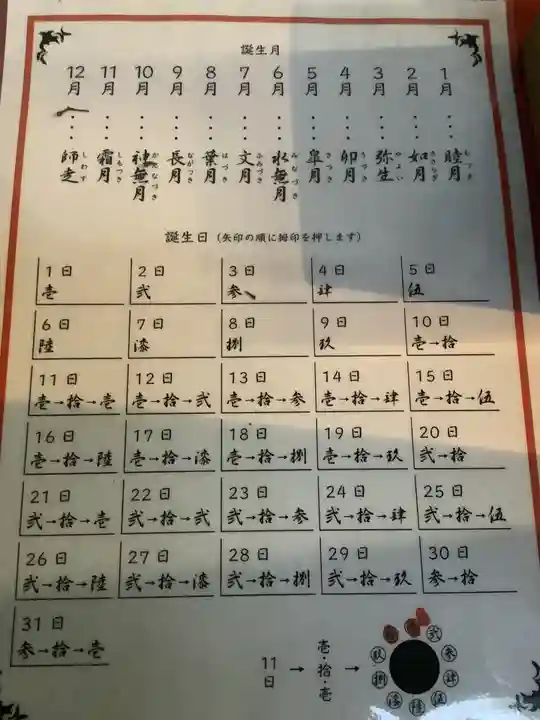 誕生月
1月・・・睦月 むつき
2月・・・如月 きさらぎ
3月・・・弥生 やよい
4月・・・卯月 うづき
5月・・・皐月 さつき
6月・・・水無月 みなづき
7月・・・文月 ふみづき
8月・・・葉月 はづき
9月・・・長月 ながつき
10月・・・神無月 かんなづき
11月・・・霜月 しもつき
12月・・・師走 しわす
誕生日(矢印の順に拇印を押します)
1日
壱
2日
弐
3日
参
4日
肆
5日
伍
6日
陸
7日
漆
8日
捌
9日
玖
10日
壱→拾
11日
壱→拾→壱
12日
壱→拾→弐
13日
壱→拾→参
14日
壱→拾→肆
15日
壱→拾→伍
16日
壱→拾→陸
17日
壱→拾→漆
18日
壱→拾→捌
19日
壱→拾→玖
20日
弐→拾
21日
弐→拾→壱
22日
弐→拾→弐
23日
弐→拾→参
24日
弐→拾→肆
25日
弐→拾→伍
26日
弐→拾→陸
27日
弐→拾→漆
28日
弐→拾→捌
29日
弐→拾→玖
30日
参→拾
31日
参→拾→壱
11日→壱・拾・壱→
弐
参
肆
伍
陸
漆
捌
玖